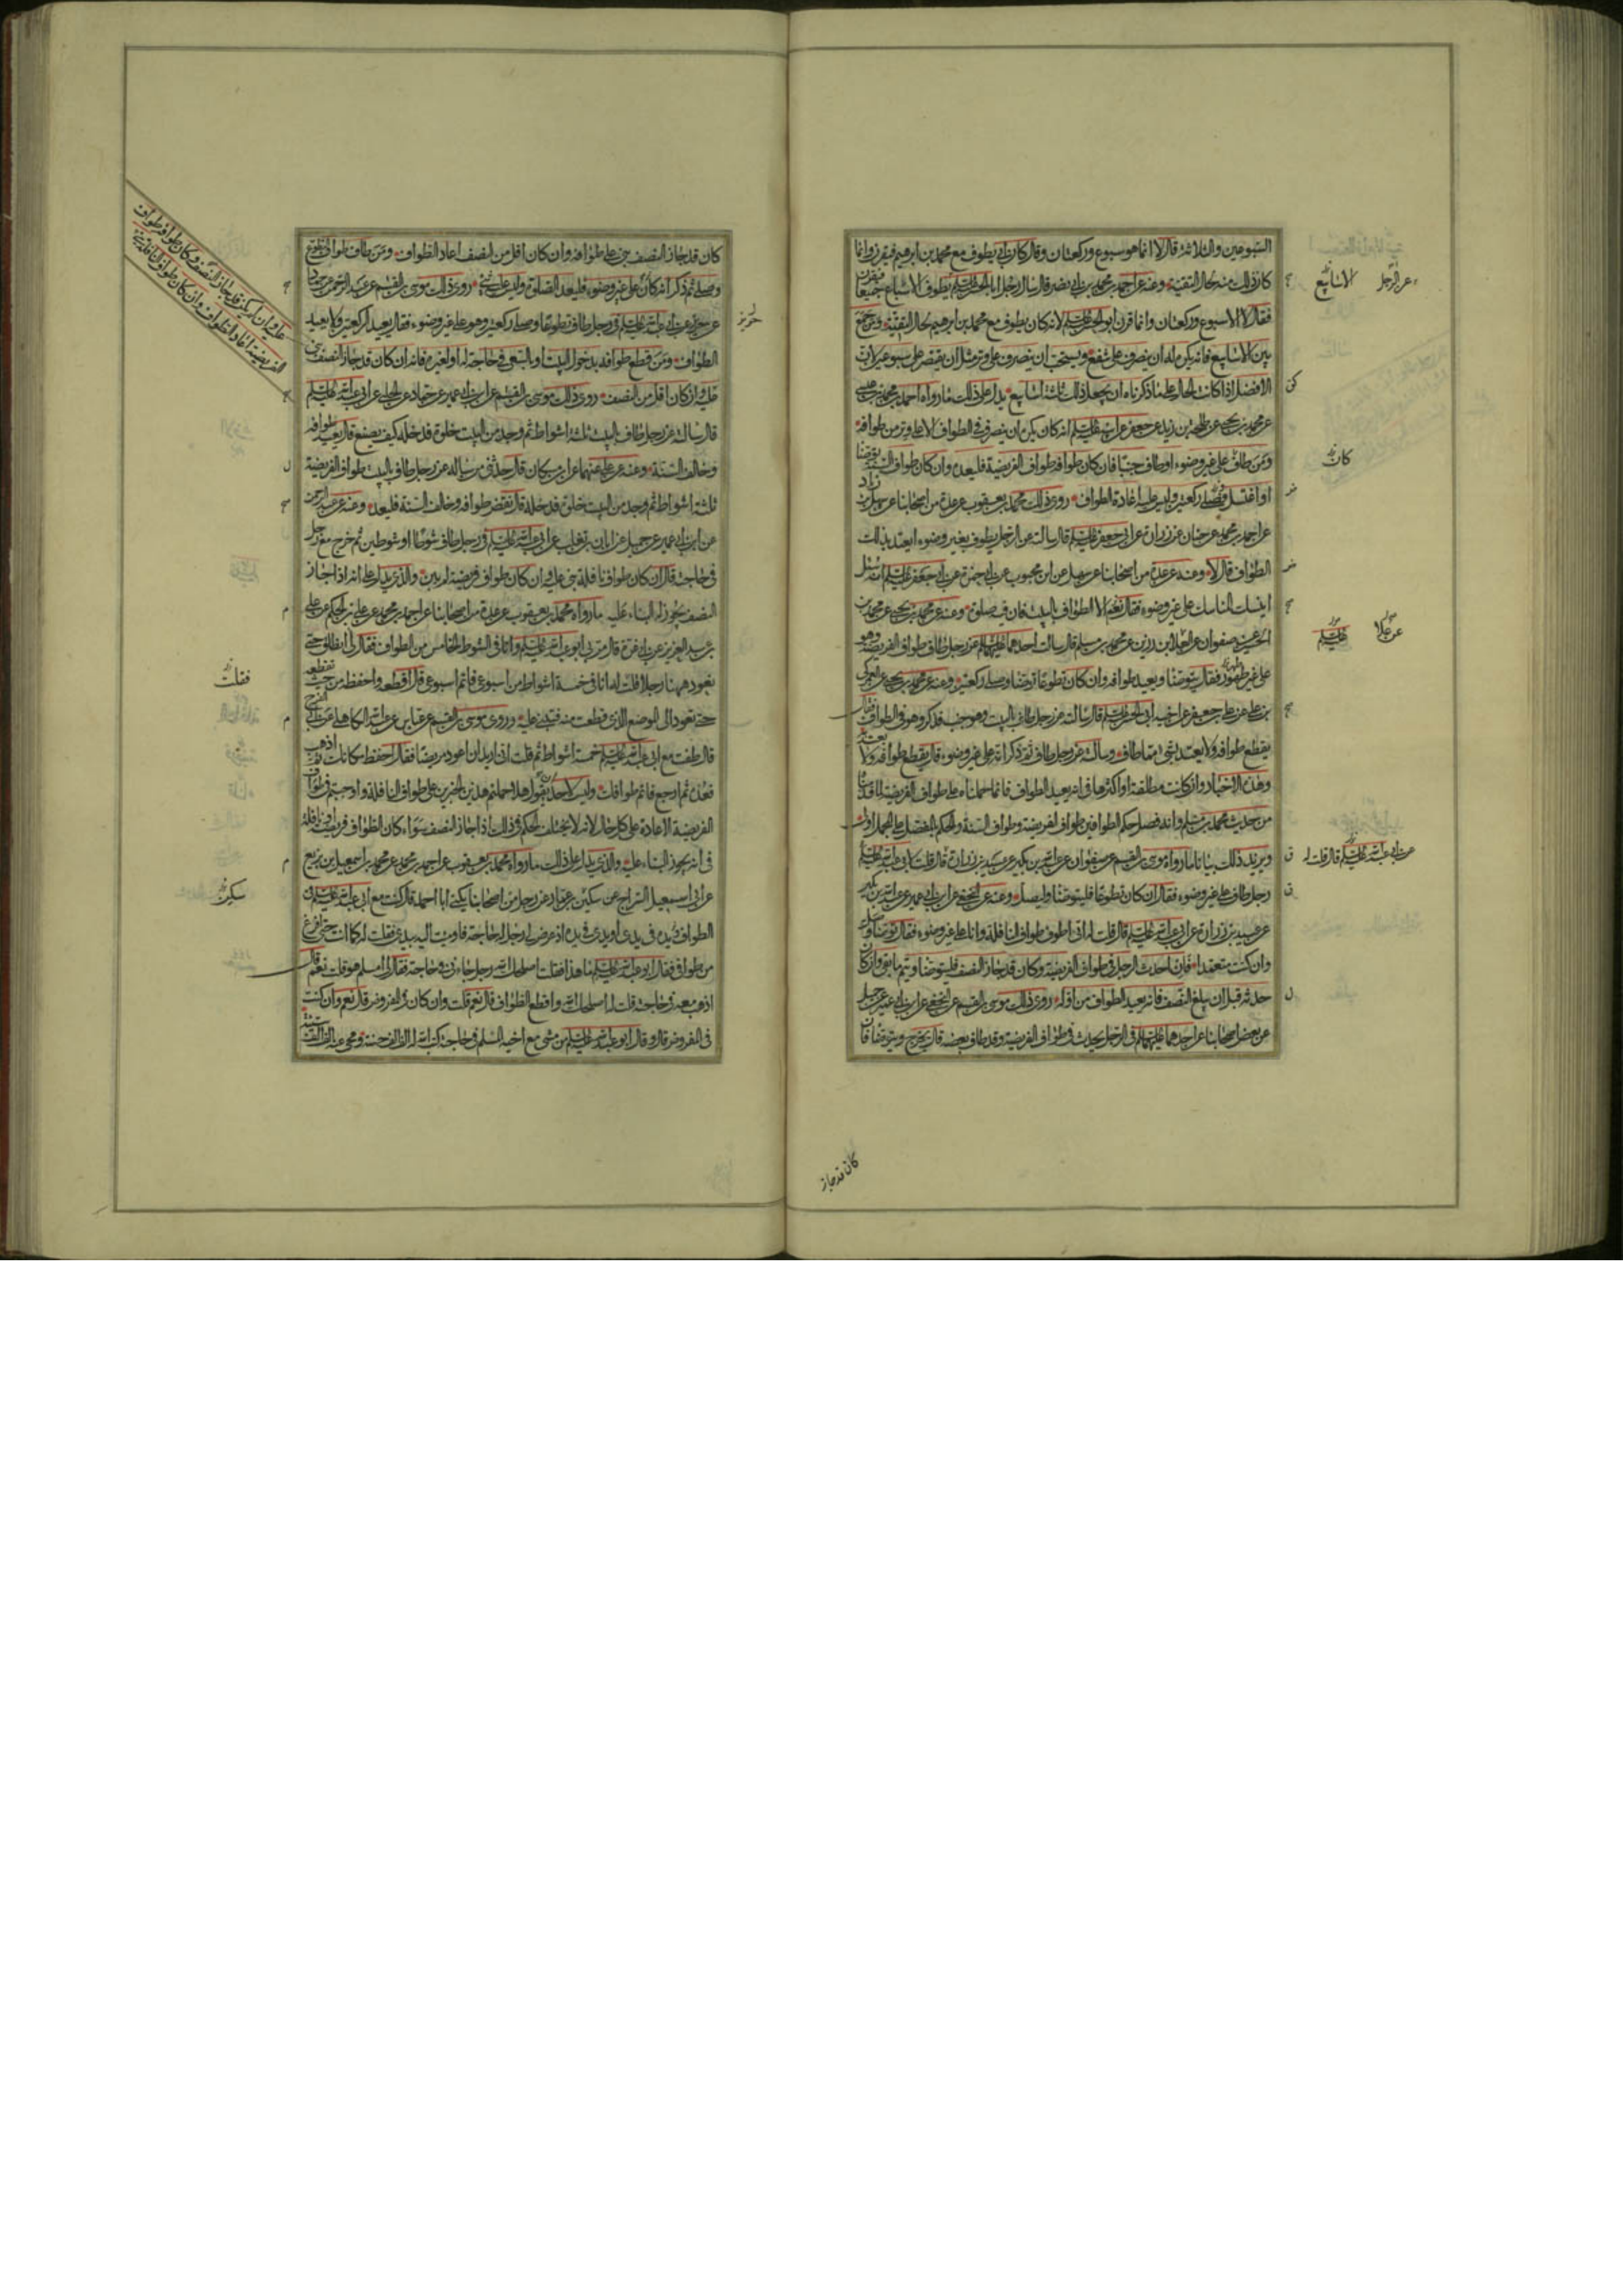 السبوعين والثلاثة قال لا انما هو سبوع وركعتان وقال كان ابي يطوف مع محمد بن ابرهيم فيقرن وانما
كان ذلك منه لحال التقية وعنه عن احمد بن محمد بن ابي نصر قال سال رجل ابا الحسن عليه السلم يطوف الاسباع جميعا فيقرن
فقال لا الا اسبوع وركعتان وانما قرن ابو الحسن عليه السلم لانه كان يطوف مع محمد بن ابرهيم لحال التقية ومن جمع
بين الاسابيع فانه يكره له ان ينصرف على شفع ويستحب ان ينصرف على وتر مثل ان يقتصر على سبوعين لان
الافضل اذا كانت الحال على ما ذكرناه ان يجعل ذلك ثلثة اسابيع يدل على ذلك ما رواه احمد بن محمد بن عيسى
عن محمد بن يحيى عن طلحة بن زيد عن جعفر عن ابيه عليه السلم انه كان يكره ان ينصرف في الطواف الا على وتر من طوافه
ومن طاف على غير وضوء او طاف جنبا فان كان طوافه طواف الفريضة فليعده وان كان طواف السنة توضا
او اغتسل فصلى ركعتين وليس عليه اعادة الطواف روى ذلك محمد بن يعقوب عن عدة من اصحابنا عن سهل بن زياد
عن احمد بن محمد عن حنان عن زرارة عن ابي جعفر عليه السلم قال سالته عن الرجل يطوف بغير وضوء ايعتد بذلك
الطواف قال لا وعنه عن عدة من اصحابنا عن سهل عن ابن محبوب عن ابي حمزة عن ابي جعفر عليه السلم انه سئل
اينسك المناسك على غير وضوء فقال نعم الا الطواف بالبيت فان فيه صلوة وعنه عن محمد بن يحيى عن محمد بن
الحسين عن صفوان عن العلا بن رزين عن محمد بن مسلم قال سالت احدهما عليهما السلم عن رجل طاف طواف الفريضة وهو
على غير طهور فقال يتوضا ويعيد طوافه وان كان تطوعا توضا وصلى ركعتين وعنه عن محمد بن يحيى عن العمركي
بن علي عن علي بن جعفر عن اخيه ابي الحسن عليه السلم قال سالته عن رجل طاف بالبيت وهو جنب فذكر وهو في الطواف فقال
يقطع طوافه ولا يعتد بشئ مما طاف وسالته عن رجل طاف ثم ذكر انه على غير وضوء قال يقطع طوافه ولا يعتد به
وهذه الاخبار وان كانت مطلقة او اكثرها في انه يعيد الطواف فانما حملناه على طواف الفريضة لما قدمنا
من حديث محمد بن مسلم وانه فصل حكم الطوافين طواف الفريضة وطواف السنة والحكم بالمفصل على المجمل اولى
ويزيد ذلك بيانا ما رواه موسى بن القسم عن صفوان عن عبد الله بن بكير عن عبيد بن زرارة قال قلت لابي عبد الله عليه السلم
رجل طاف على غير وضوء فقال ان كان تطوعا فليتوضا وليصل وعنه عن النخعي عن ابن ابي عمير عن عبد الله بن بكير
عن عبيد بن زرارة عن ابي عبد الله عليه السلم قال قلت له اني اطوف طواف النافلة وانا على غير وضوء فقال توضا وصل
وان كنت متعمدا فان احدث الرجل في طواف الفريضة وكان قد جاز النصف فليتوضا ويتم ما بقي وان كان
حدثه قبل ان يبلغ النصف فانه يعيد الطواف من اوله روى ذلك موسى بن القسم عن النخعي عن ابن ابي عمير عن جميل
عن بعض اصحابنا عن احدهما عليهما السلم في الرجل يحدث في طواف الفريضة وقد طاف بعضه قال يخرج ويتوضا فان
عن الرجل
الاسابيع
كان
عن علا
عليه السلم
عن ابي عبد الله عليه السلم قال قلت له
كان قد جاز
كان قد جاز النصف بنى على طوافه وان كان اقل من النصف اعاد الطواف ومن طاف طواف التطوع
وصلى ثم ذكر انه كان على غير وضوء فليعد الصلوة وليس عليه شئ روى ذلك موسى بن القسم عن عبد الرحمن عن حماد
عن حريز عن ابي عبد الله عليه السلم في رجل طاف تطوعا وصلى ركعتين وهو على غير وضوء فقال يعيد الركعتين ولا يعيد
الطواف ومن قطع طوافه بدخول البيت او بالسعي في حاجة له او لغيره فانه ان كان قد جاز النصف بنى
عليه وان كان اقل من النصف روى ذلك موسى بن القسم عن ابن ابي عمير عن حماد عن الحلبي عن ابي عبد الله عليه السلم
قال سالته عن رجل طاف بالبيت ثلثة اشواط ثم وجد من البيت خلوة فدخله كيف يصنع قال يعيد طوافه
وخالف السنة وعنه عن علي عنهما عن ابن مسكان قال حدثني من ساله عن رجل طاف بالبيت طواف الفريضة
ثلثة اشواط ثم وجد من البيت خلوة فدخله قال نقض طوافه وخالف السنة فليعد وعنه عن عبد الرحمن
عن ابن ابي عمير عن جميل عن ابان بن تغلب عن ابي عبد الله عليه السلم في رجل طاف شوطا او شوطين ثم خرج مع رجل
في حاجة قال ان كان طواف نافلة بنى عليه وان كان طواف فريضة لم يبن والذي يدل على انه اذا جاز
النصف يجوز له البناء عليه ما رواه محمد بن يعقوب عن عدة من اصحابنا عن احمد بن محمد عن علي بن الحكم عن علي
بن عبد العزيز عن ابي عزة قال مر بي ابو عبد الله عليه السلم وانا في الشوط الخامس من الطواف فقال لي انطلق حتى
نعود ههنا رجلا فقلت له انا في خمسة اشواط من اسبوعي فاتم اسبوعي قال اقطعه واحفظه من حيث تقطعه
حتى تعود الى الموضع الذي قطعت منه فتبني عليه وروى موسى بن القسم عن عباس عن عبد الله الكاهلي عن ابي الفرج
قال طفت مع ابي عبد الله عليه السلم خمسة اشواط ثم قلت اني اريد ان اعود مريضا فقال احفظ مكانك ثم اذهب
فعده ثم ارجع فاتم طوافك وليس لاحد ان يقول هلا حملتم هذين الخبرين على طواف النافلة واوجبتم في طواف
الفريضة الاعادة على كل حال لانه لا يختلف الحكم في ذلك اذا جاز النصف سواء كان الطواف فريضة او نافلة
في انه يجوز البناء عليه والذي يدل على ذلك ما رواه محمد بن يعقوب عن احمد بن محمد عن محمد بن اسمعيل بن بزيع
عن ابي اسمعيل السراج عن سكين بن عمار عن رجل من اصحابنا يكنى ابا احمد قال كنت مع ابي عبد الله عليه السلم في
الطواف يده في يدي او يدي في يده اذ عرض لي رجل له حاجة فاومت اليه بيدي فقلت له كما انت حتى افرغ
من طوافي فقال ابو عبد الله عليه السلم ما هذا فقلت اصلحك الله رجل جاءني في حاجة فقال لي امسلم هو قلت نعم قال
اذهب معه في حاجته قلت له اصلحك الله واقطع الطواف قال نعم قلت وان كان في المفروض قال نعم وان كنت
في المفروض قال وقال ابو عبد الله عليه السلم من مشى مع اخيه المسلم في حاجة كتب الله له الف الف حسنة ومحى عنه الف الف سيئة
حريز
عليه وان لم يكن قد جاز النصف وكان طوافه طواف
الفريضة اعاد الطواف وان كان طواف النافلة بنى
فقلت
سكين